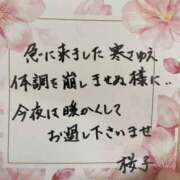 急に来ました寒さゆえ
体調を崩しませぬ様に..
今夜は暖かくして
お過し下さいませ
桜子